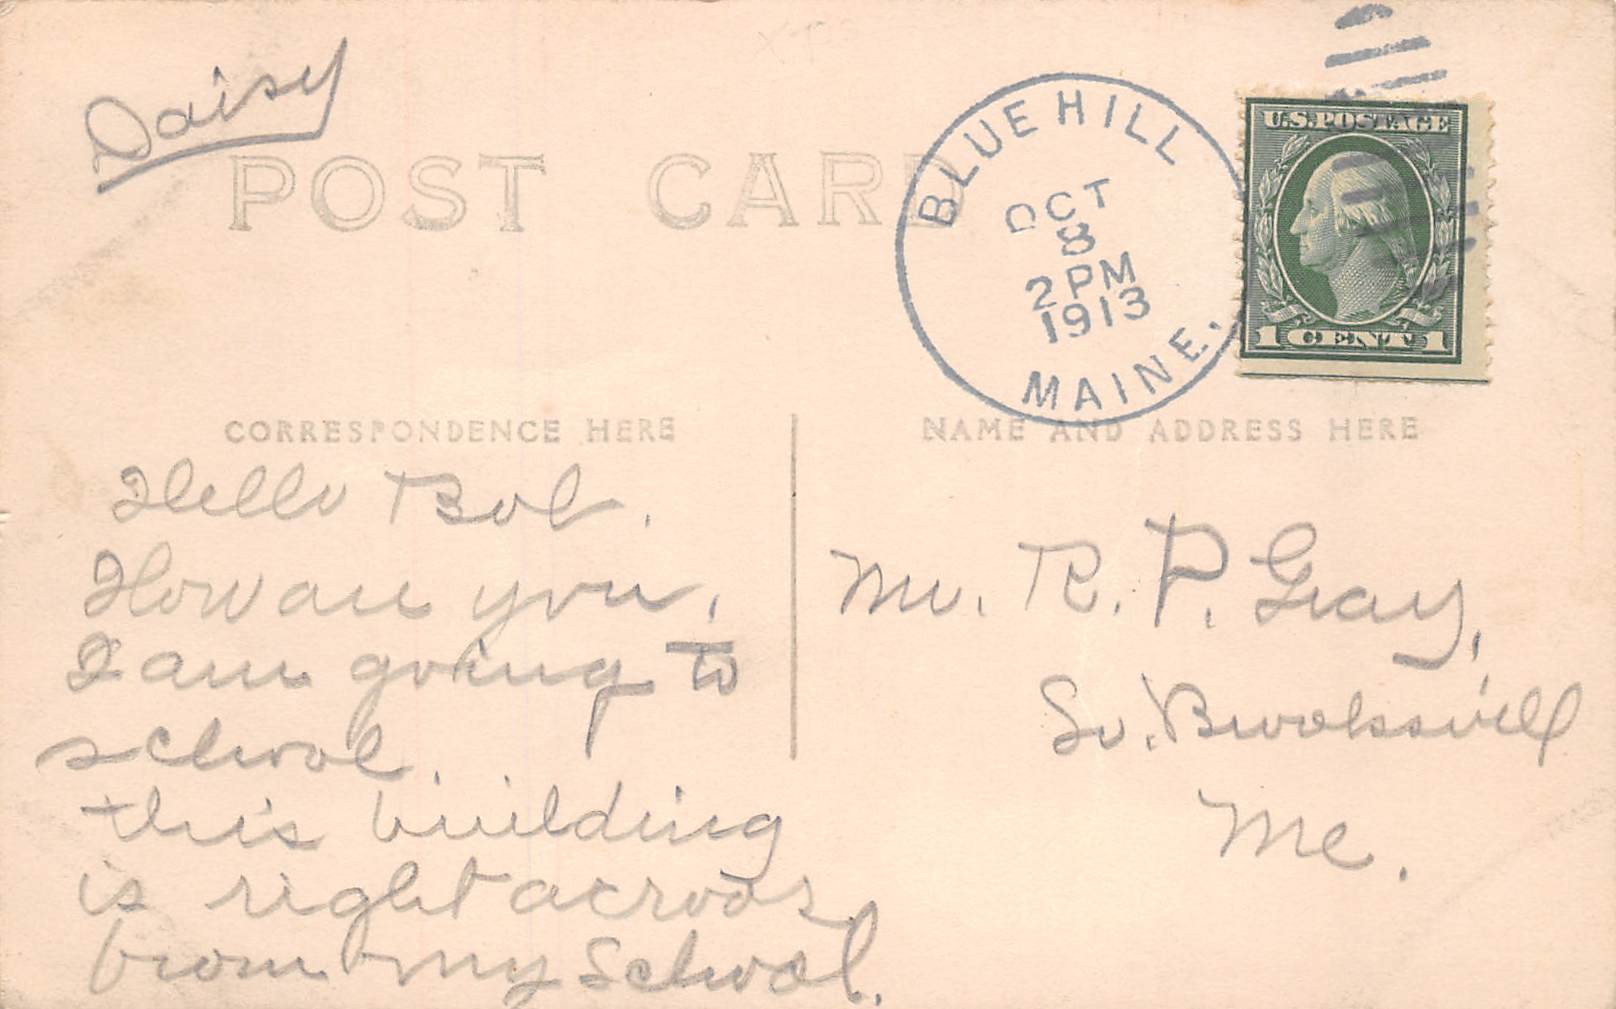 Daisy
POST CARD
BLUE HILL
OCT
8
2 PM
1913
MAINE.
U.S. POSTAGE
1 CENT 1
CORRESPONDENCE HERE
NAME AND ADDRESS HERE
Hello Bob.
How are you,
I am going to
school.
this building
is right across
from my School.
Mr. R. P. Gray,
So. Brooksvill
Me.